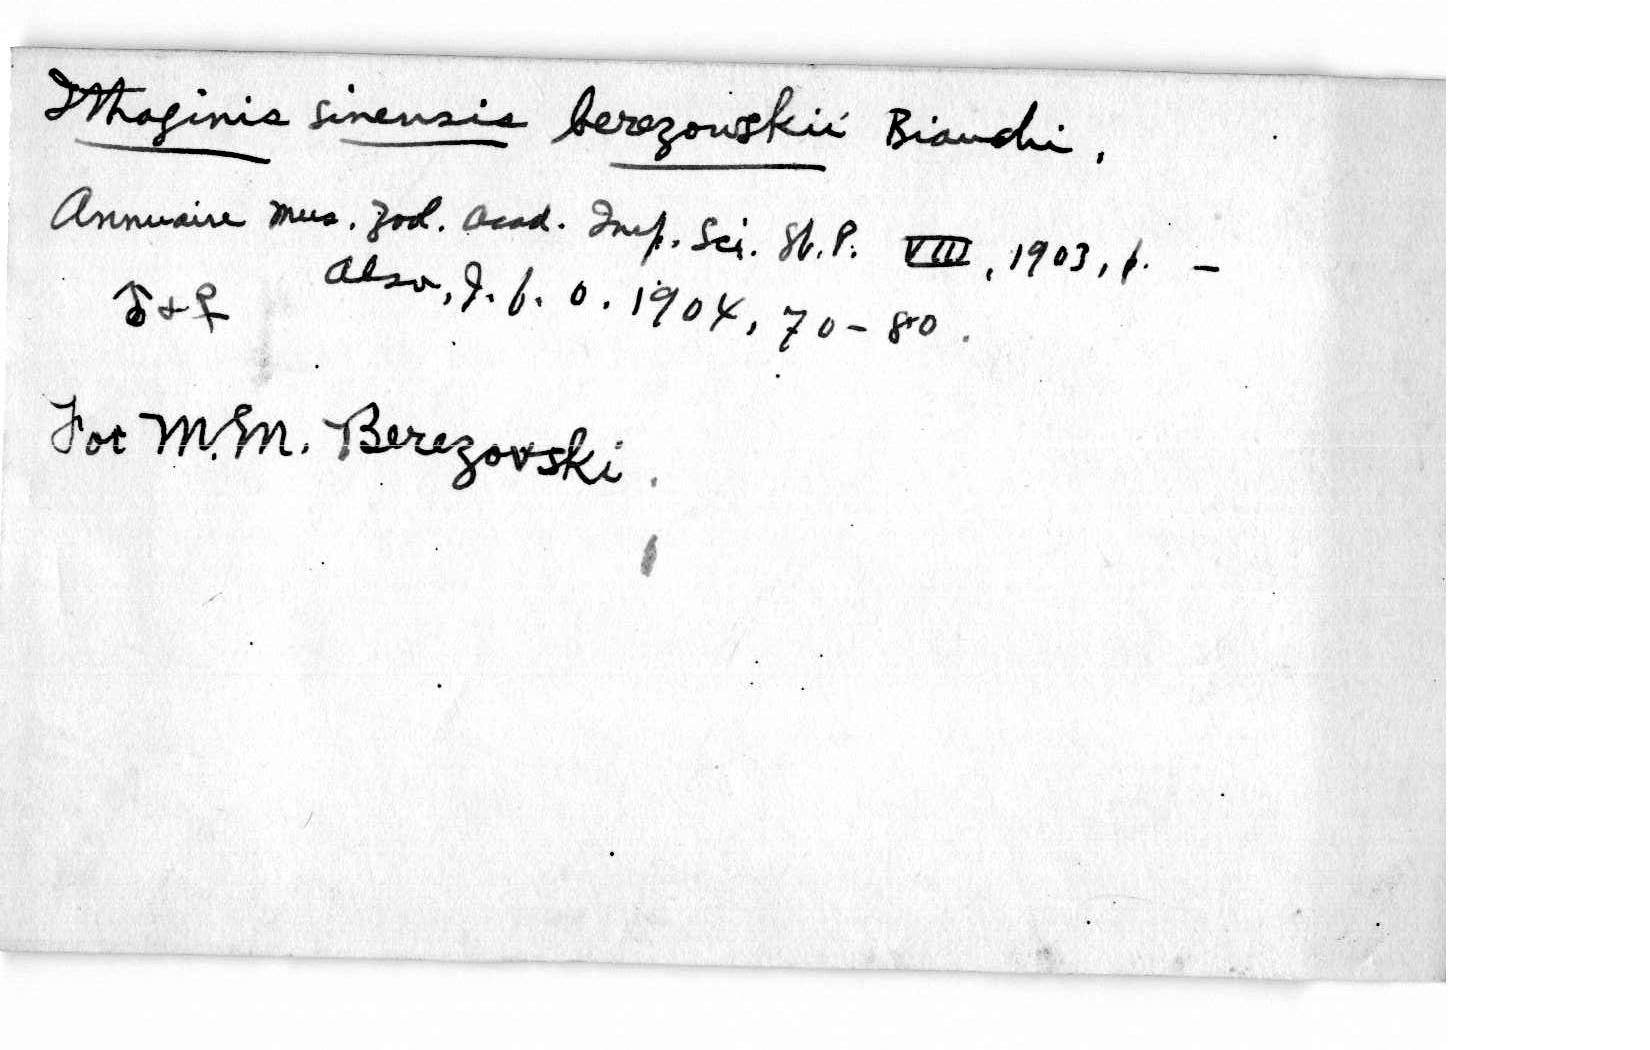 Ithaginis sinensis berezowskii Bianchi.
Annuaire Mus. Zool. Acad. Imp. Sci. St. P. VIII, 1903, p. —
♂ + ♀ Also, J. f. O. 1904, 70-80.
For M.M. Berezovski.